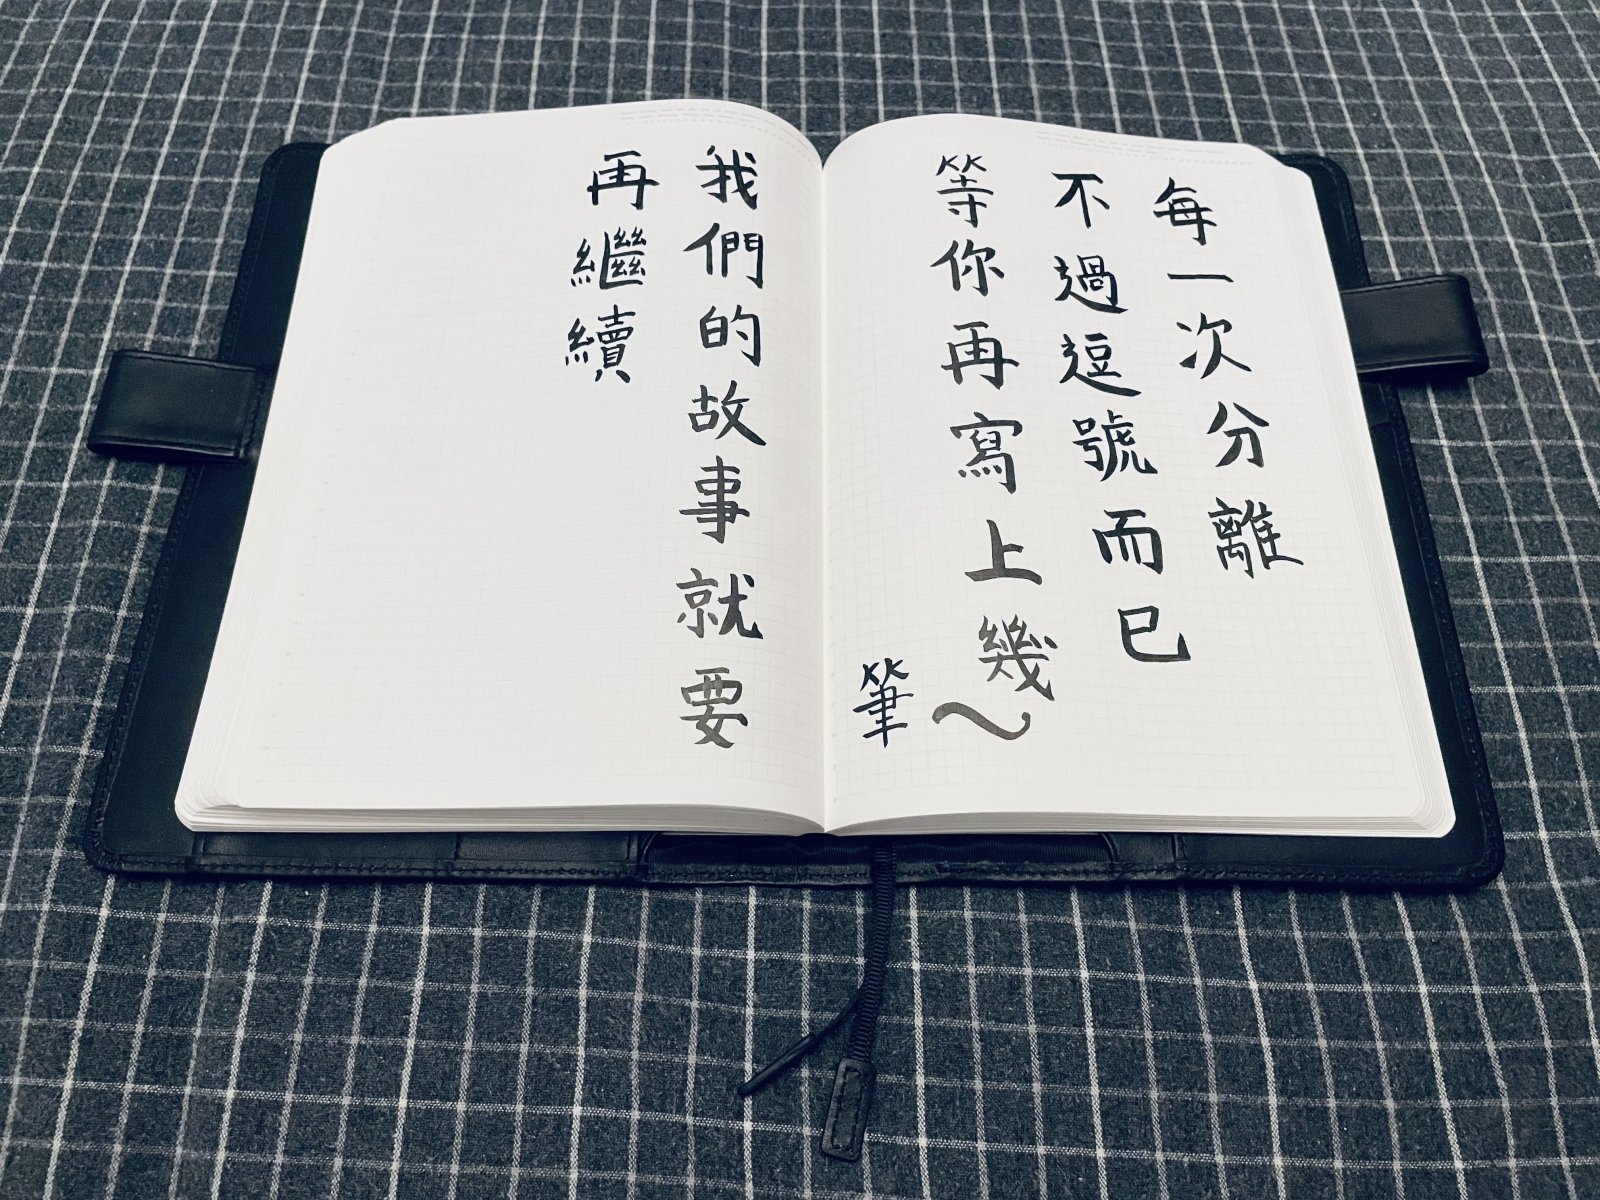 每一次分離
不過逗號而已
等你再寫上幾～
筆
我們的故事就要
再繼續